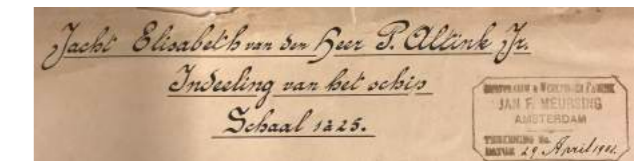 Jacht Elisabeth van den Heer P. Altink Jr.
Indeeling van het schip
Schaal 1 à 25.
JAN F. MEURSING
AMSTERDAM
TEEKENING No.
DATUM 29 April